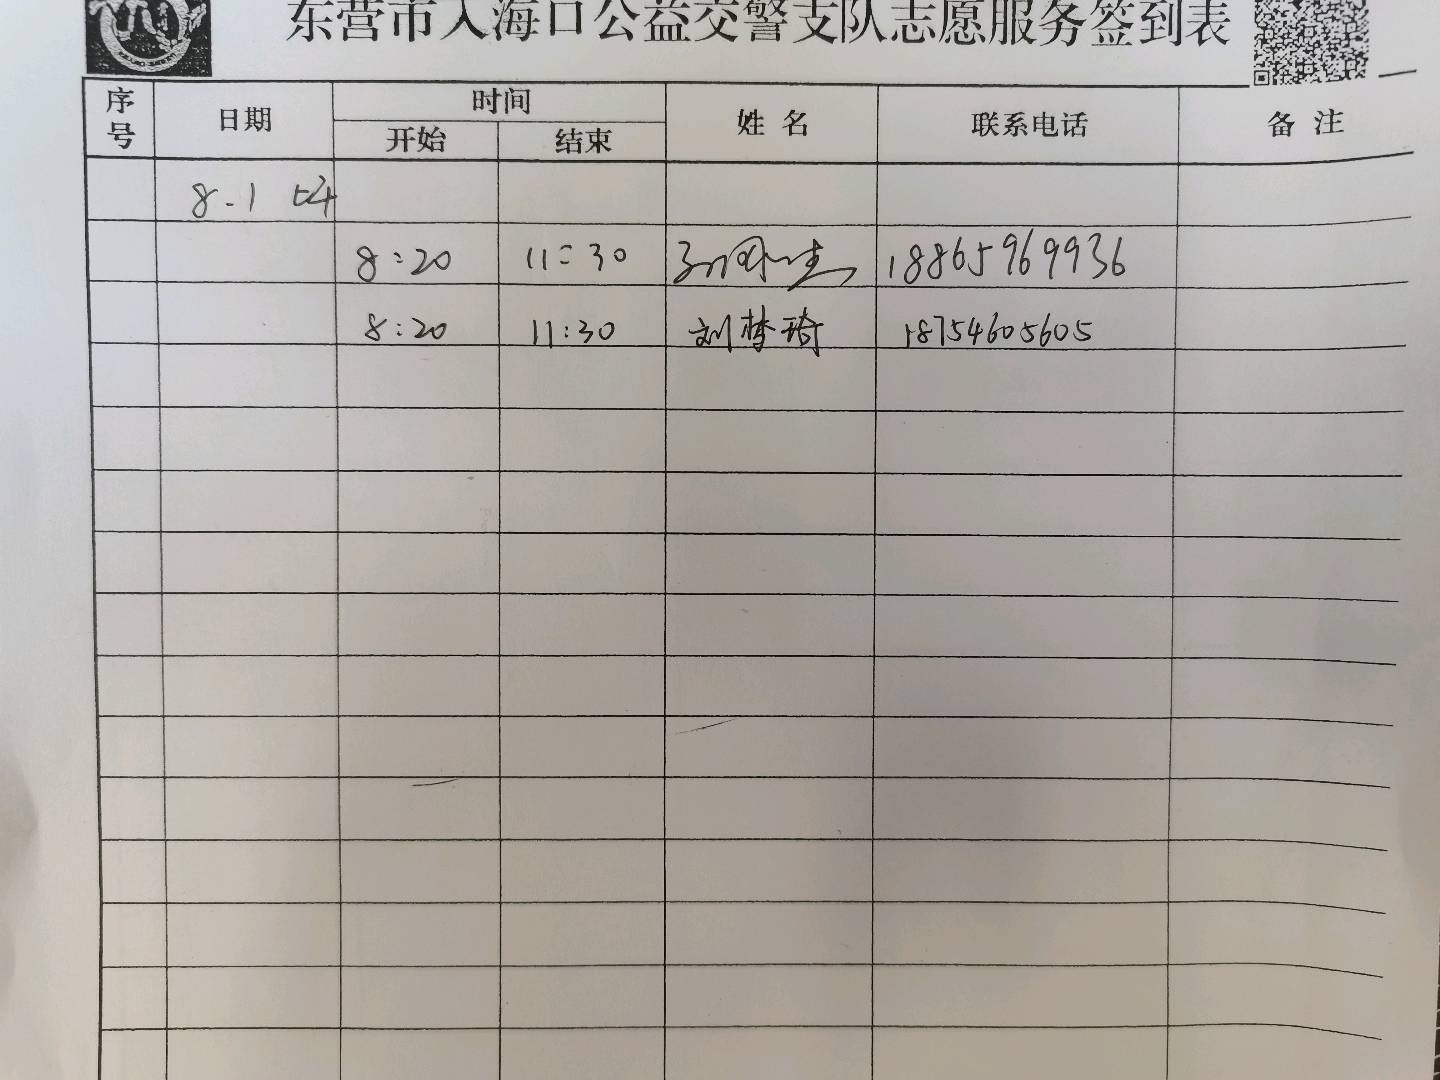 东营市入海口公益交警支队志愿服务签到表
序号 日期 时间 姓名 联系电话 备注
开始 结束
8.1
8:20 11:30 18865969936
8:20 11:30 刘梦琦 18754605605